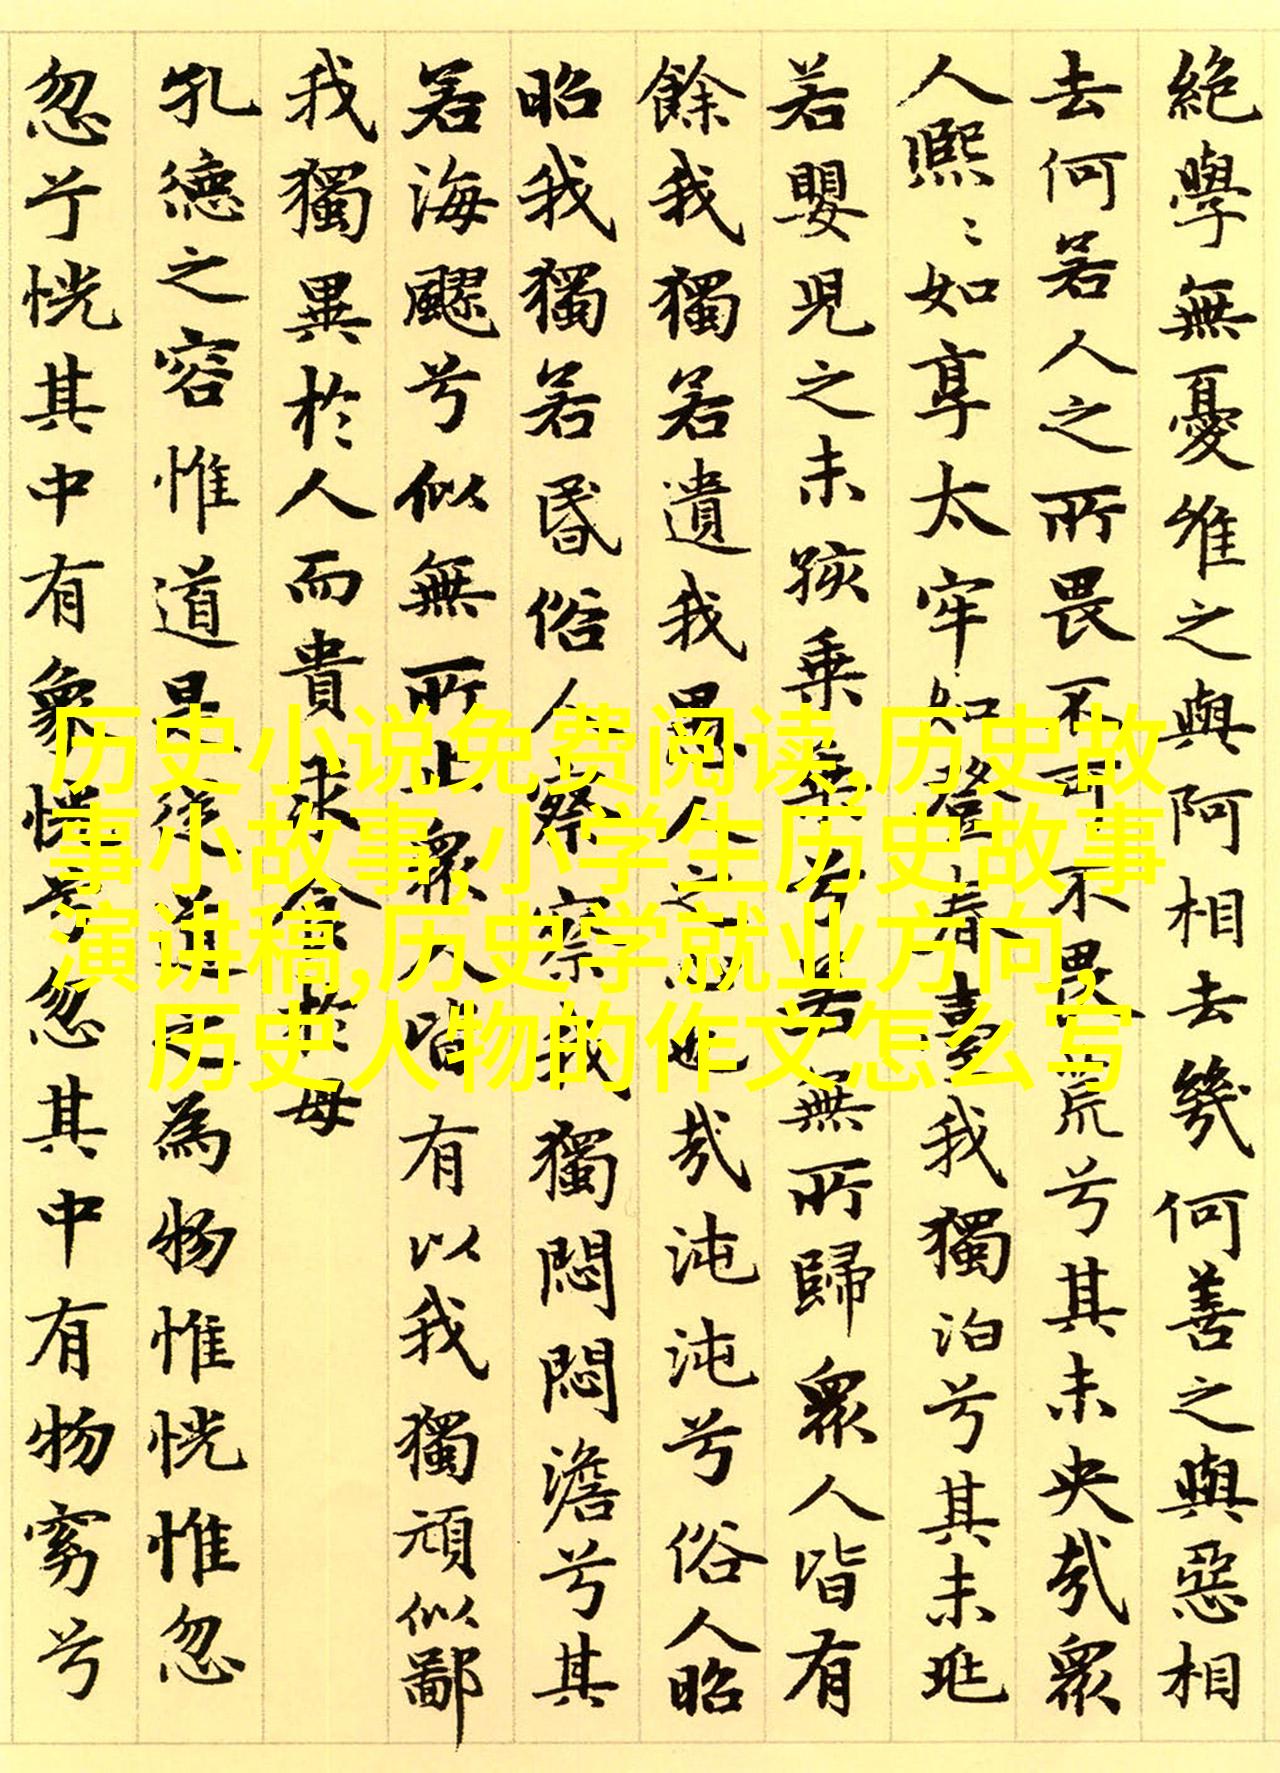 絶學無憂唯之與阿相去幾何善之與惡相
去何若人之所畏不可不畏荒兮其未央哉衆
人熙〻如享太牢如登春臺我獨泊兮其未兆
若嬰兒之未孩乗乗兮若無所歸衆人皆有
餘我獨若遺我愚人之心也哉沌沌兮俗人昭
昭我獨若昬俗人察察我獨悶悶澹兮其
若海飂兮似無所止衆人皆有以我獨頑似鄙
我獨異於人而貴求食於母
孔德之容惟道是從道之為物惟恍惟忽
忽兮恍其中有象恍兮忽其中有物窈兮
历史小说免费阅读,历史故
事小故事,小学生历史故事
演讲稿,历史学就业方向,
历史人物的作文怎么写